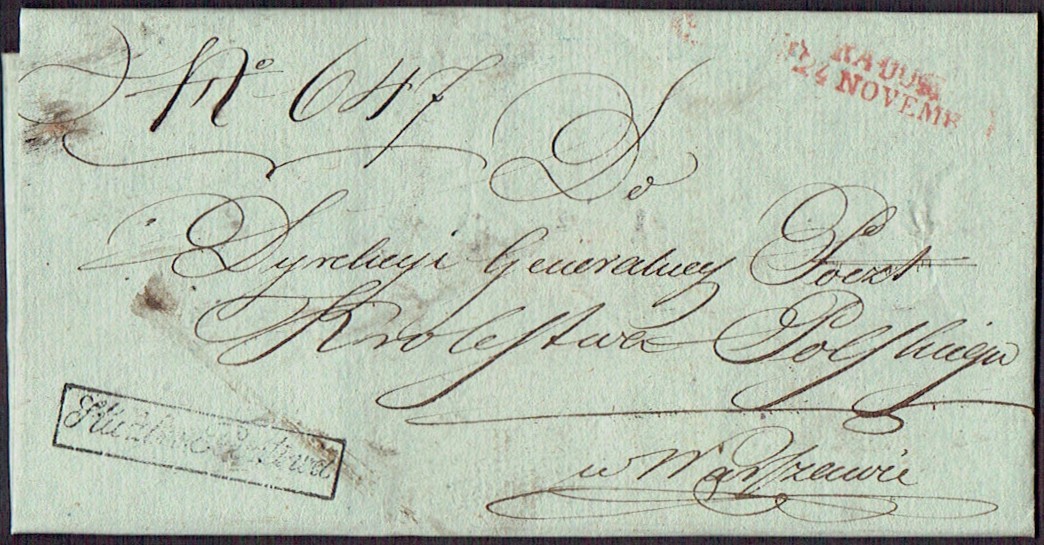 No 647
RADOM
24 NOVEMB
Do
Dyrekcyi Generalney Poczt
Krolestwa Polskiego
w Warszawie
Służba Pocztowa